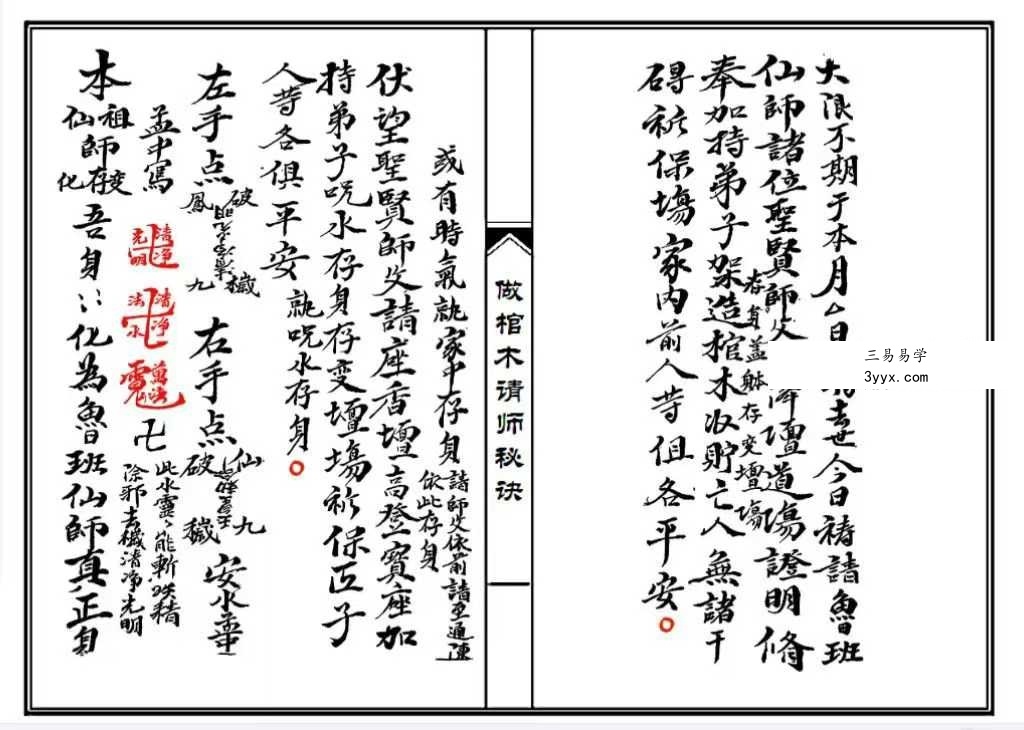 大限不期于本月厶日去世今日祷請魯班
仙師諸位聖賢師父降壇道場證明修
奉加持弟子架造棺木収貯亡人無諸干
存身盖躰存变壇場
碍祈保塲家内前人等俱各平安
三易易学
3yyx.com
做棺木请师秘诀
或有時氣就家中存身
請師父依前請至通陳
依此存身
伏望聖賢師父請座香壇高登寳座加
持弟子咒水存身存变壇塲祈保匠子
人等各俱平安
就咒水存身
左手点
破
鳳
穢
九
右手点
仙
破
九
穢
安水盂中
盂中寫
清净
光明
清净
法水
萬法
卍
此水靈靈能斬妖精
除邪去穢清净光明
本祖
仙師存变
化
吾身
化為魯班仙師真正身